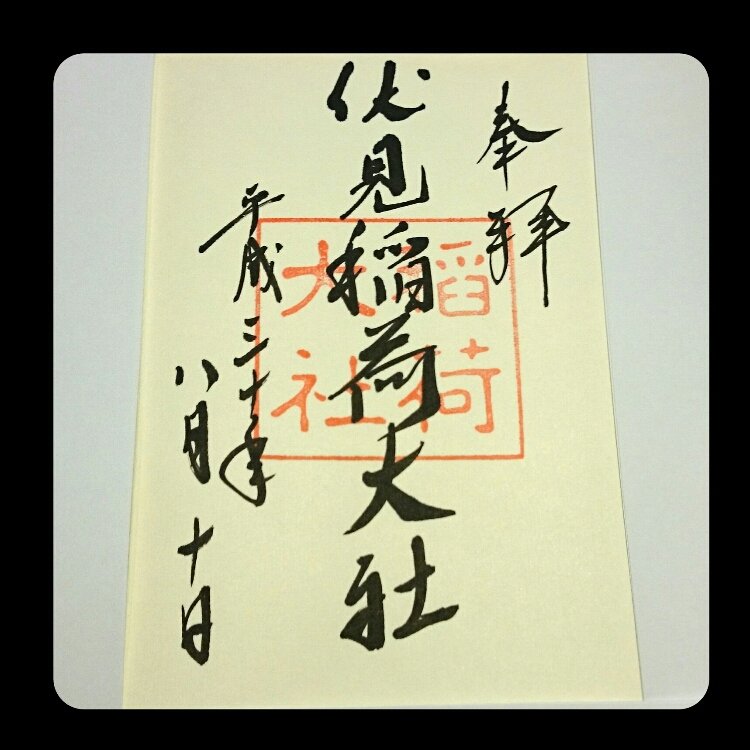 奉拝
伏見稲荷大社
稲荷
大社
平成三十年
八月十日